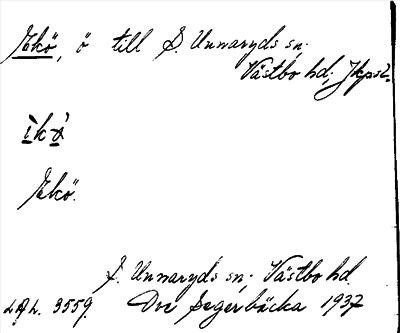 Ekö, ö till S. Unnaryds sn,
Västbo hd, Jkps l.
ìkö̀
Ekö.
S. Unnaryds sn, Västbo hd.
LAL. 3559. Ove Segerbäcka 1937